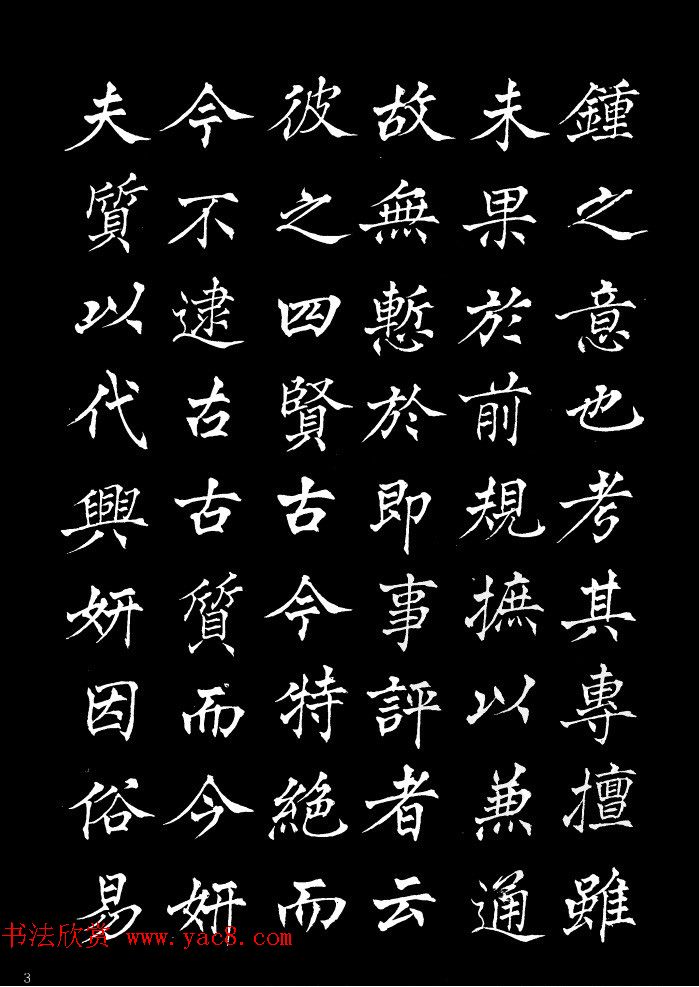 鍾之意也考其專擅雖
未果於前規摭以兼通
故無慙於即事評者云
彼之四賢古今特絕而
今不逮古古質而今妍
夫質以代興妍因俗易
书法欣赏 www.yac8.com
3